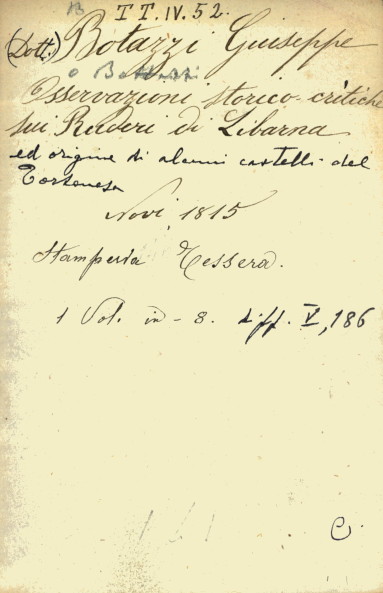 B TT. IV. 52.
(Dott.) Botazzi Giuseppe
o Bottazzi
Osservazioni storico-critiche
sui Ruderi di Libarna
ed origine di alcuni castelli del
Tortonese
Novi, 1815
Stamperia Tessera.
1 Vol. in-8. diff. V, 186
C.